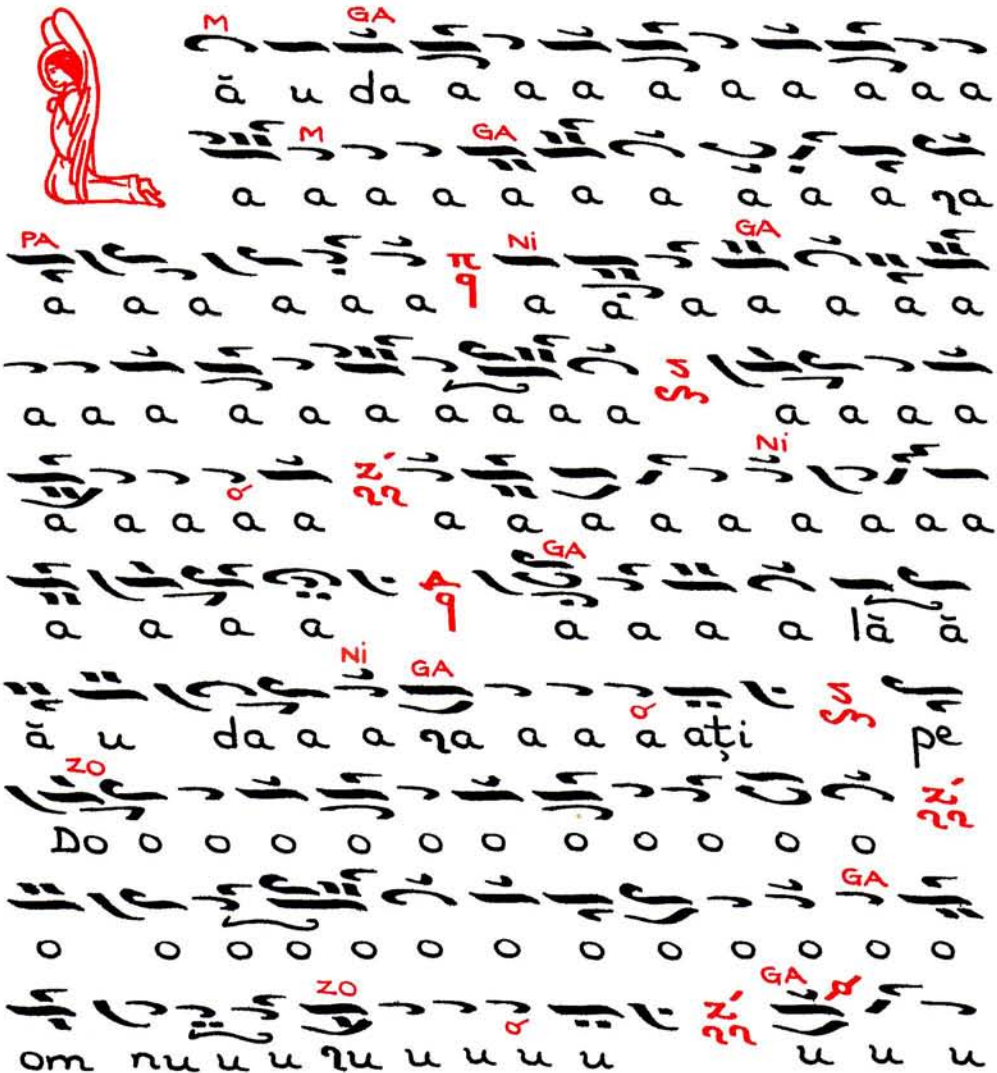 M GA
ă u da a a a a a a a a a
M GA
a a a a a a a a a a ɳa
PA π q Ni GA
a a a a a a a ă a a a a a
a a a a a a a a a a a a a a
Ni
a a a a a a a a a a a a a a
GA
a a a a a a a a lă ă
Ni GA
ă u da a a ɳa a a a ați pe
ZO
Do o o o o o o o o o o o
GA
o o o o o o o o o o o o o
ZO GA
om nu u u ɳu u u u u u u u